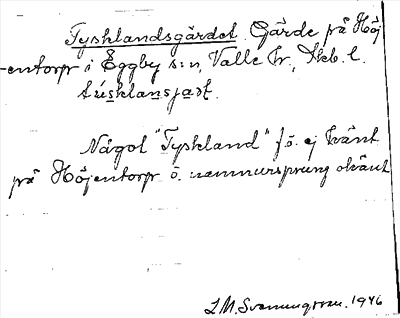 Tysklandsgärdet. Gärde på Höj
-entorp i Eggby s:n, Valle hr, Skb. l.
túsklansjaṣt.
Något "Tyskland" f.ö. ej känt
på Höjentorp o. namnursprung okänt
L M. Svenungsson. 1946